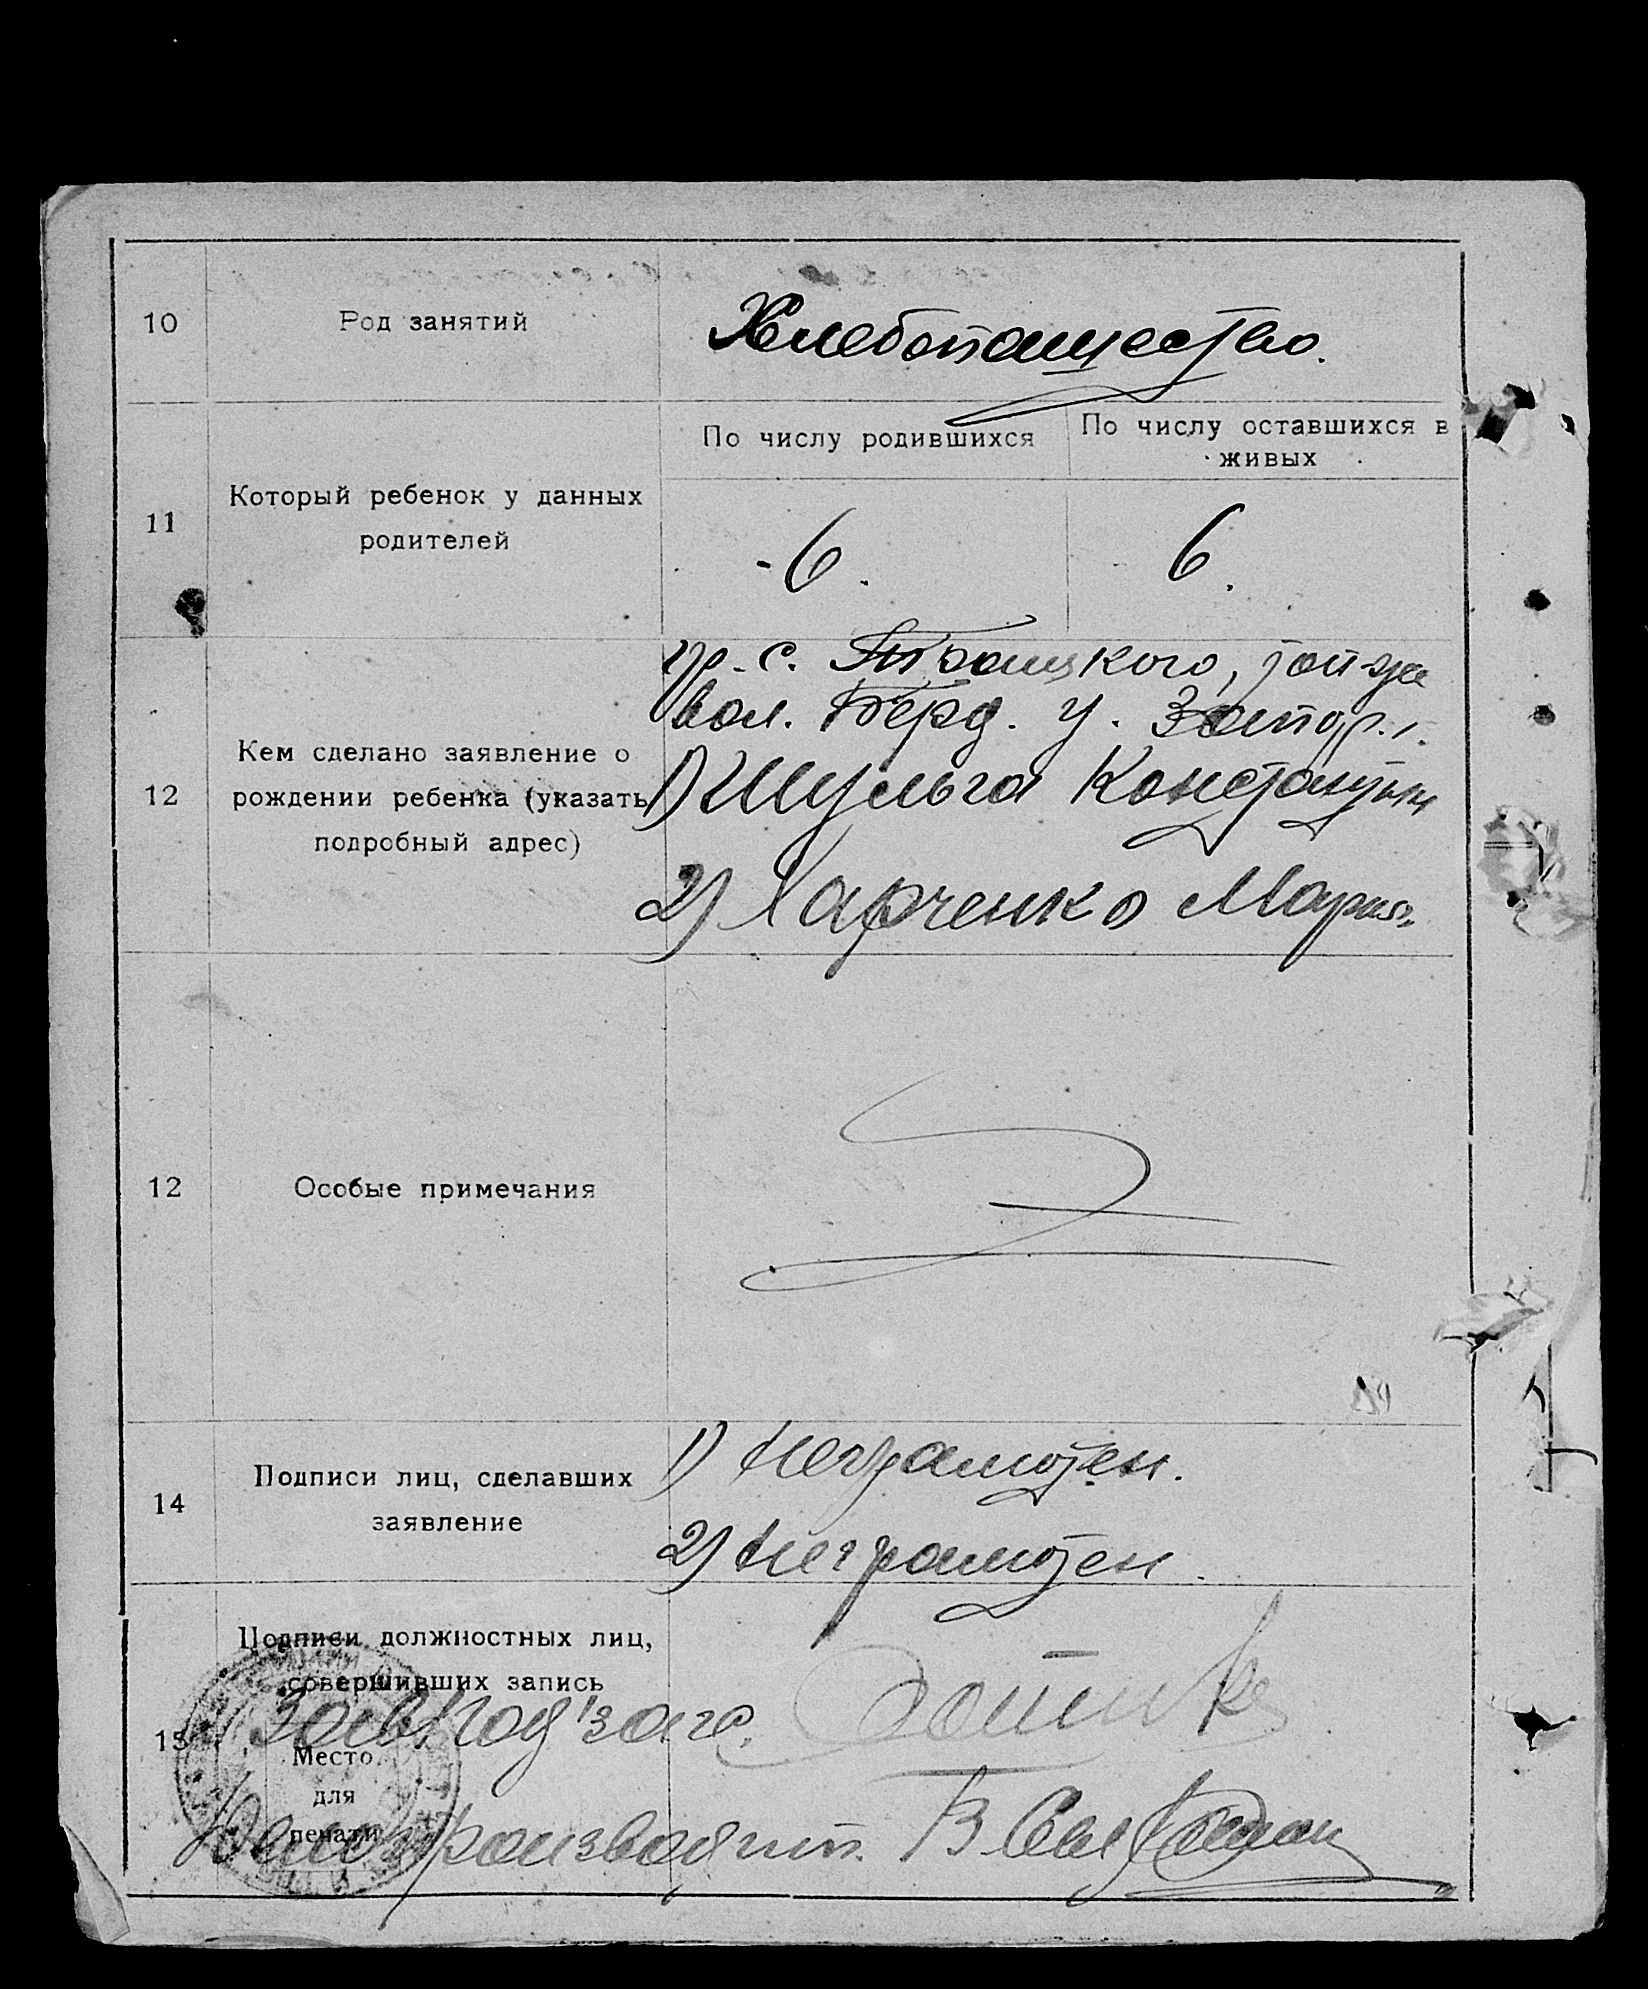 10
Род занятий
Хлебопашество.
11
Который ребенок у данных
родителей
По числу родившихся
По числу оставшихся в
живых
6.
6.
12
Кем сделано заявление о
рождении ребенка (указать
подробный адрес)
гр. с. Троицкого, той-же
вол. Берд. у. Запор. г.
1) Шульга Константин
2) Харченко Мария
12
Особые примечания
14
Подписи лиц, сделавших
заявление
1) Неграмотен.
2) Неграмотен.
15
Подписи должностных лиц,
совершивших запись
Зав. Под'загс.
Место
для
печати
Делопроизводит. В